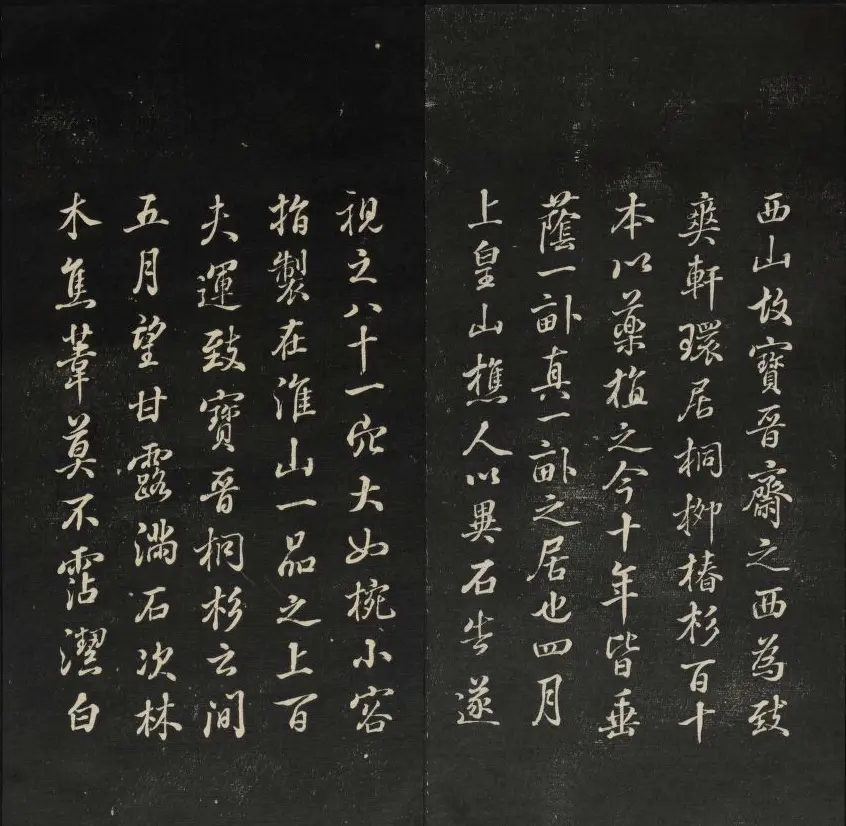 西山故寶晉齋之西為致
爽軒環居桐栁椿杉百十
本以藥植之今十年皆垂
蔭一畝真一畝之居也四月
上皇山樵人以異石告遂
視之八十一穴大如椀小容
指製在淮山一品之上百
夫運致寶晉桐杉之間
五月望甘露滿石次林
木焦葦莫不霑潔白